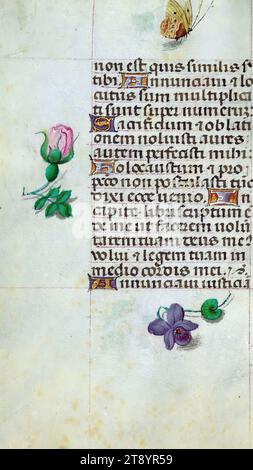 non est quis similis s
tibi Annunciavi et lo
cutus sum multiplica
ti sunt super numerum
Sacrificium et oblati
onem noluisti aures
autem perfecisti mihi
Holocaustum et pro p
cc̄o non postulasti tūc
dixi ecce venio In
capite libri scriptum e
de me ut facerem volū
tatem tuam deus me
volui et legem tuam in
medio cordis mei
Annunciavi iusticia
alamy
Image ID: 2T8YR59
www.alamy.com